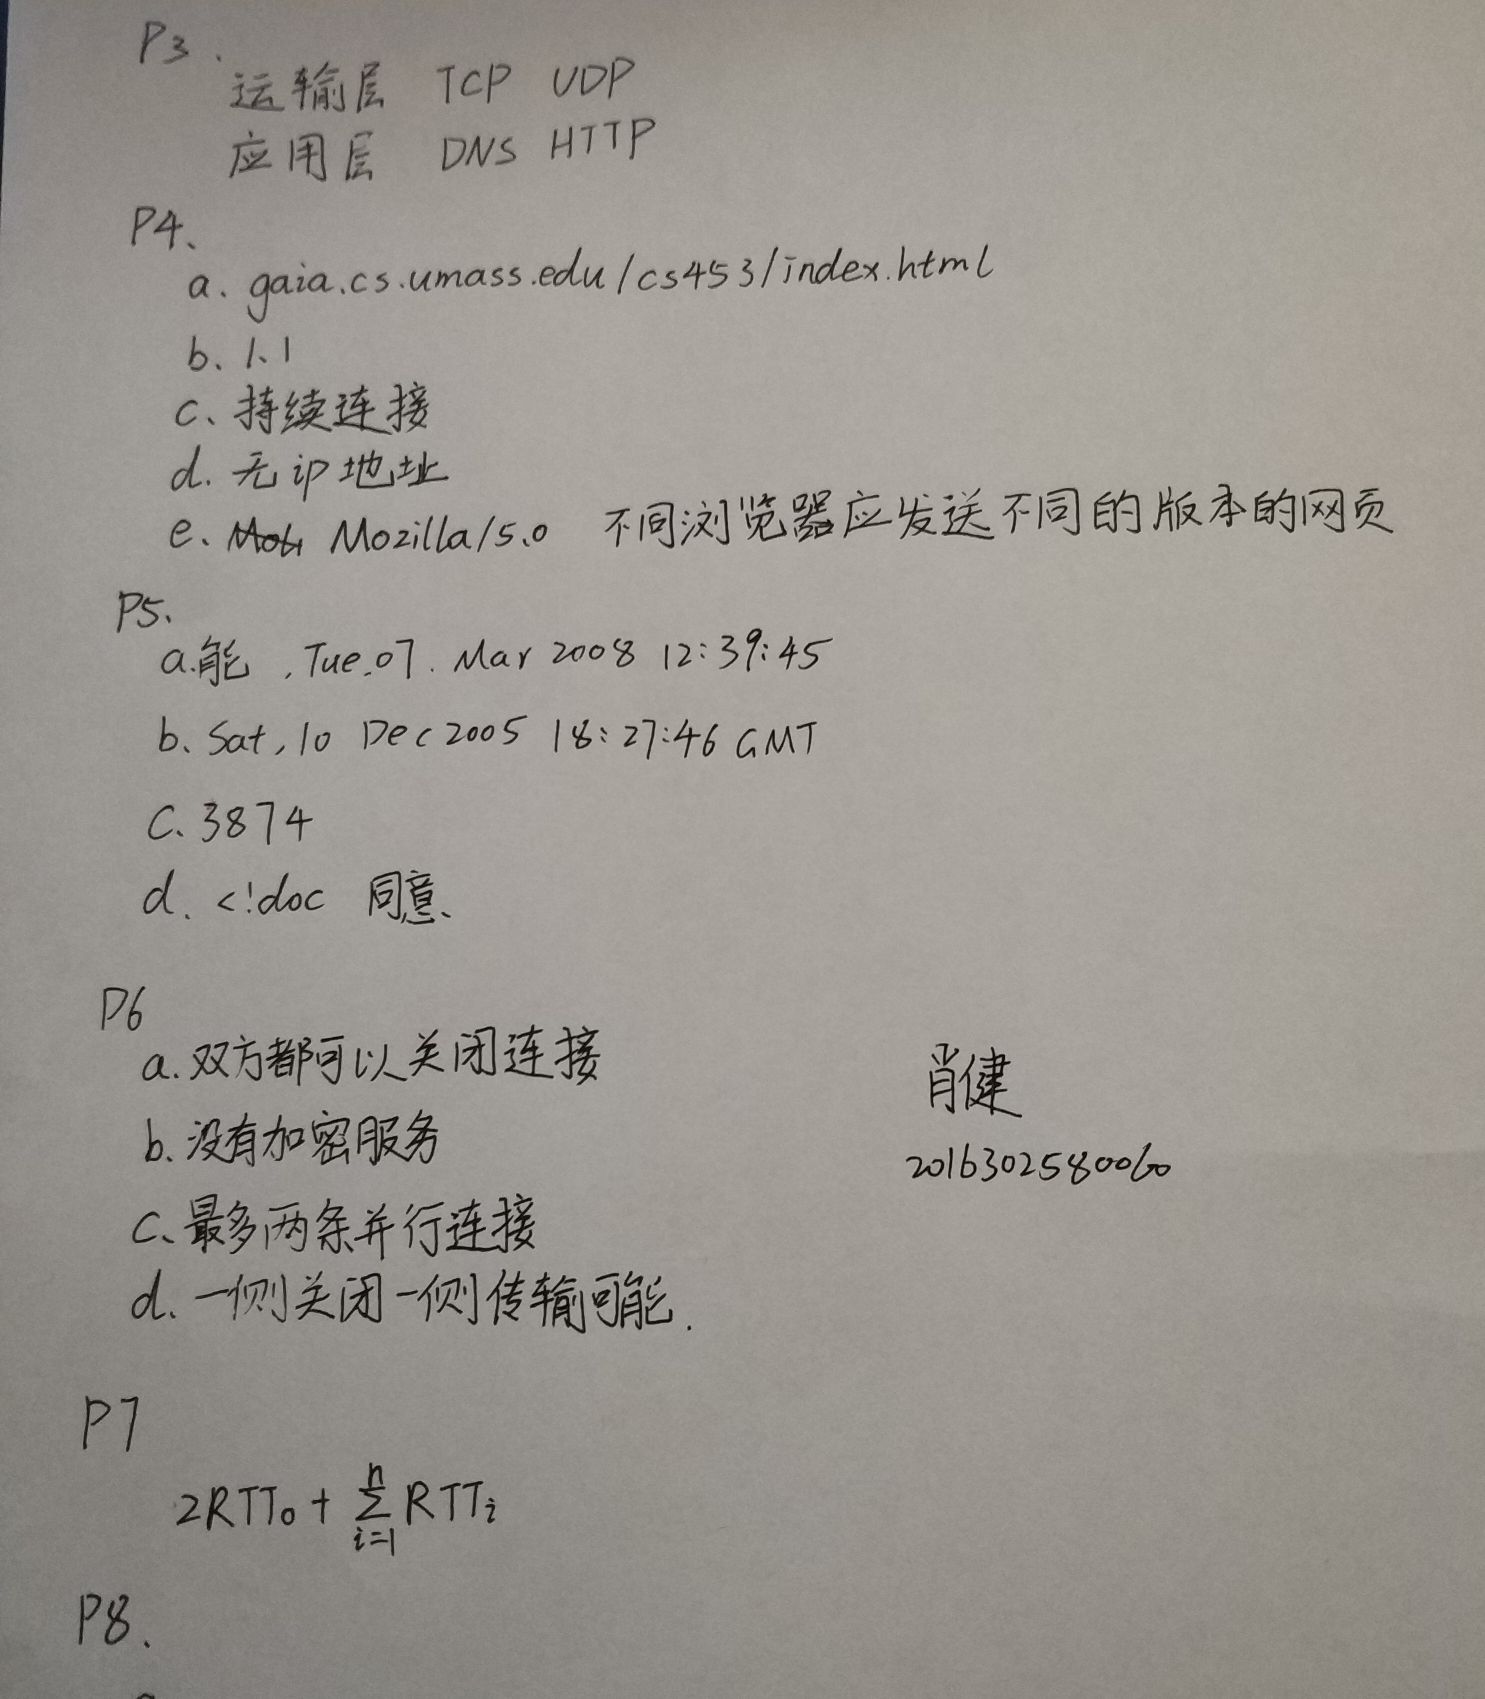 P3.
运输层 TCP UDP
应用层 DNS HTTP
P4、
a. gaia.cs.umass.edu/cs453/index.html
b、1、1
c、持续连接
d. 无ip地址
e、Mozilla/5.0 不同浏览器应发送不同的版本的网页
P5、
a.能 ,Tue.07. Mar 2008 12:39:45
b、Sat, 10 Dec 2005 18:27:46 GMT
C、3874
d. <!doc 同意、
P6
a. 双方都可以关闭连接
b. 没有加密服务
c、最多两条并行连接
d. 一侧关闭一侧传输可能.
肖健
2016302580060
P7
2RTT₀ + ∑ⁿᵢ₌₁ RTTᵢ
P8、